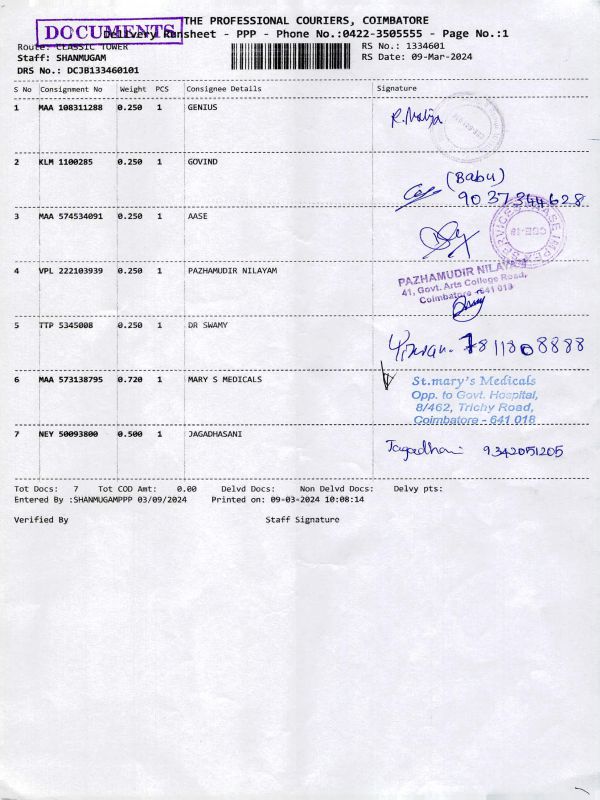 THE PROFESSIONAL COURIERS, COIMBATORE
DOCUMENTS
Delivery Runsheet - PPP - Phone No.:0422-3505555 - Page No.:1
Route: CLASSIC TOWER
RS No.: 1334601
Staff: SHANMUGAM
RS Date: 09-Mar-2024
DRS No.: DCJB133460101
S No Consignment No Weight PCS Consignee Details Signature
1 MAA 108311288 0.250 1 GENIUS
2 KLM 1100285 0.250 1 GOVIND
(Babu)
9037344628
3 MAA 574534091 0.250 1 AASE
4 VPL 222103939 0.250 1 PAZHAMUDIR NILAYAM
PAZHAMUDIR NILAYAM
41, Govt. Arts College Road,
Coimbatore - 641 018
5 TTP 5345008 0.250 1 DR SWAMY
7811808888
6 MAA 573138795 0.720 1 MARY S MEDICALS
St.mary's Medicals
Opp. to Govt. Hospital,
8/462, Trichy Road,
Coimbatore - 641 018
7 NEY 50093800 0.500 1 JAGADHASANI
9342051205
Tot Docs: 7 Tot COD Amt: 0.00 Delvd Docs: Non Delvd Docs: Delvy pts:
Entered By :SHANMUGAMPPP 03/09/2024 Printed on: 09-03-2024 10:08:14
Verified By Staff Signature